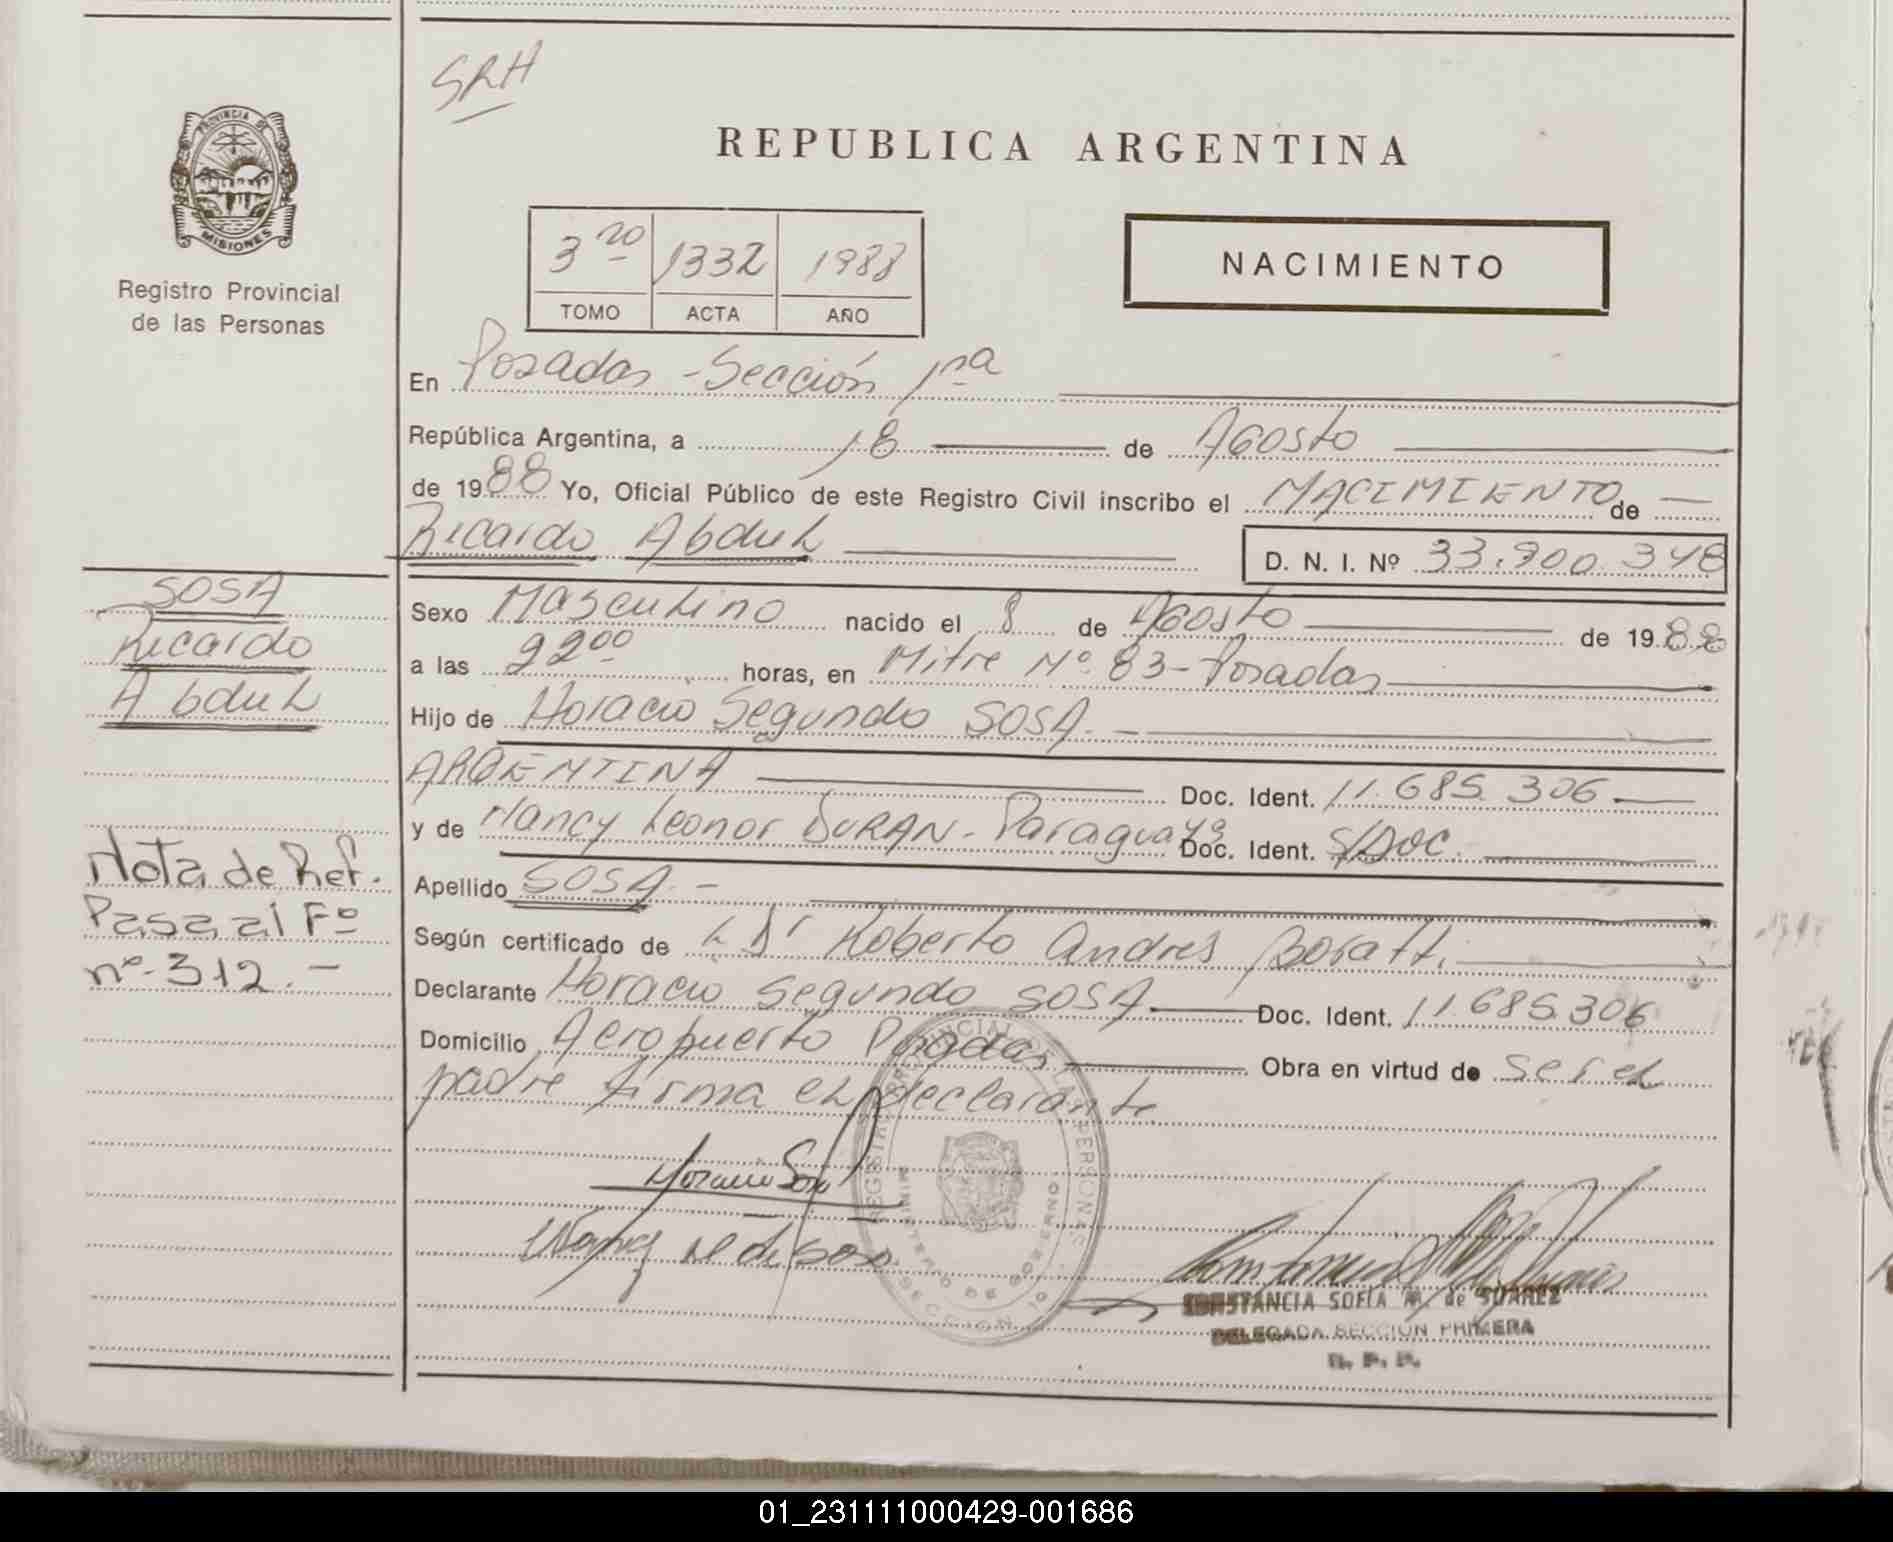 SRH
PROVINCIA DE
MISIONES
Registro Provincial
de las Personas
REPUBLICA ARGENTINA
3ro 1332 1988
TOMO ACTA AÑO
NACIMIENTO
En Posadas - Sección 1ra
República Argentina, a 18 de Agosto
de 1988 Yo, Oficial Público de este Registro Civil inscribo el NACIMIENTO de
Ricardo Abdul
D. N. I. Nº 33.900.348
SOSA
Ricardo
Abdul
Sexo Masculino nacido el 8 de Agosto de 1988
a las 22 00 horas, en Mitre Nº 83 - Posadas
Hijo de Horacio Segundo SOSA. -
ARGENTINA Doc. Ident. 11.685.306
y de Nancy Leonor DURAN - Paraguaya Doc. Ident. S/Doc.
Nota de Ref.
Pasa al Fº
nº 312. -
Apellido SOSA. -
Según certificado de L Dr Roberto Andrés
Declarante Horacio Segundo SOSA Doc. Ident. 11.685.306
Domicilio Aeropuerto Posadas Obra en virtud de ser el
padre firma el declarante
Horacio Sosa
Nancy D de Sosa
REGISTRO PROVINCIAL DE LAS PERSONAS
MINISTERIO DE GOBIERNO
SECCION 1ª
CONSTANCIA SOFIA M. de SUAREZ
DELEGADA SECCION PRIMERA
R. P. P.
01_231111000429-001686